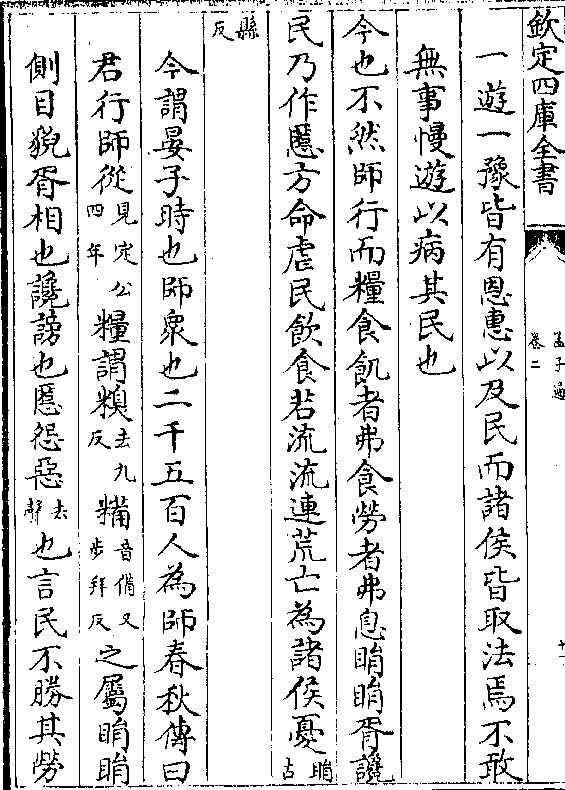 欽定四庫全書
孟子通
卷二
十一
一遊一豫皆有恩惠以及民而諸侯皆取法焉不敢
無事慢遊以病其民也
今也不然師行而糧食飢者弗食勞者弗息睊睊胥讒
民乃作慝方命虐民飲食若流流連荒亡為諸侯憂睊古
縣反
今謂晏子時也師衆也二千五百人為師春秋傳曰
君行師從見定公四年糧謂糗去九反糒音備又步拜反之屬睊睊
側目貌胥相也讒謗也慝怨惡去聲也言民不勝其勞